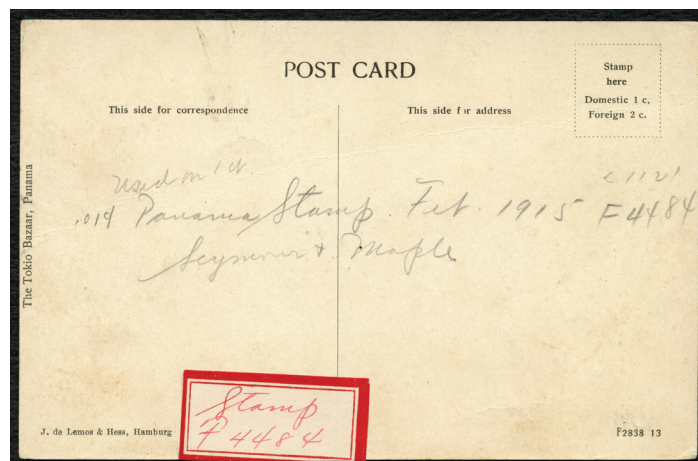 POST CARD
Stamp
here
Domestic 1 c,
Foreign 2 c.
This side for correspondence
This side for address
The Tokio Bazaar, Panama
Used on 1 ct.
Panama Stamp. Feb. 1915 F4484
Seymour & Maple
Stamp
F4484
J. de Lemos & Hess, Hamburg
F2838 13